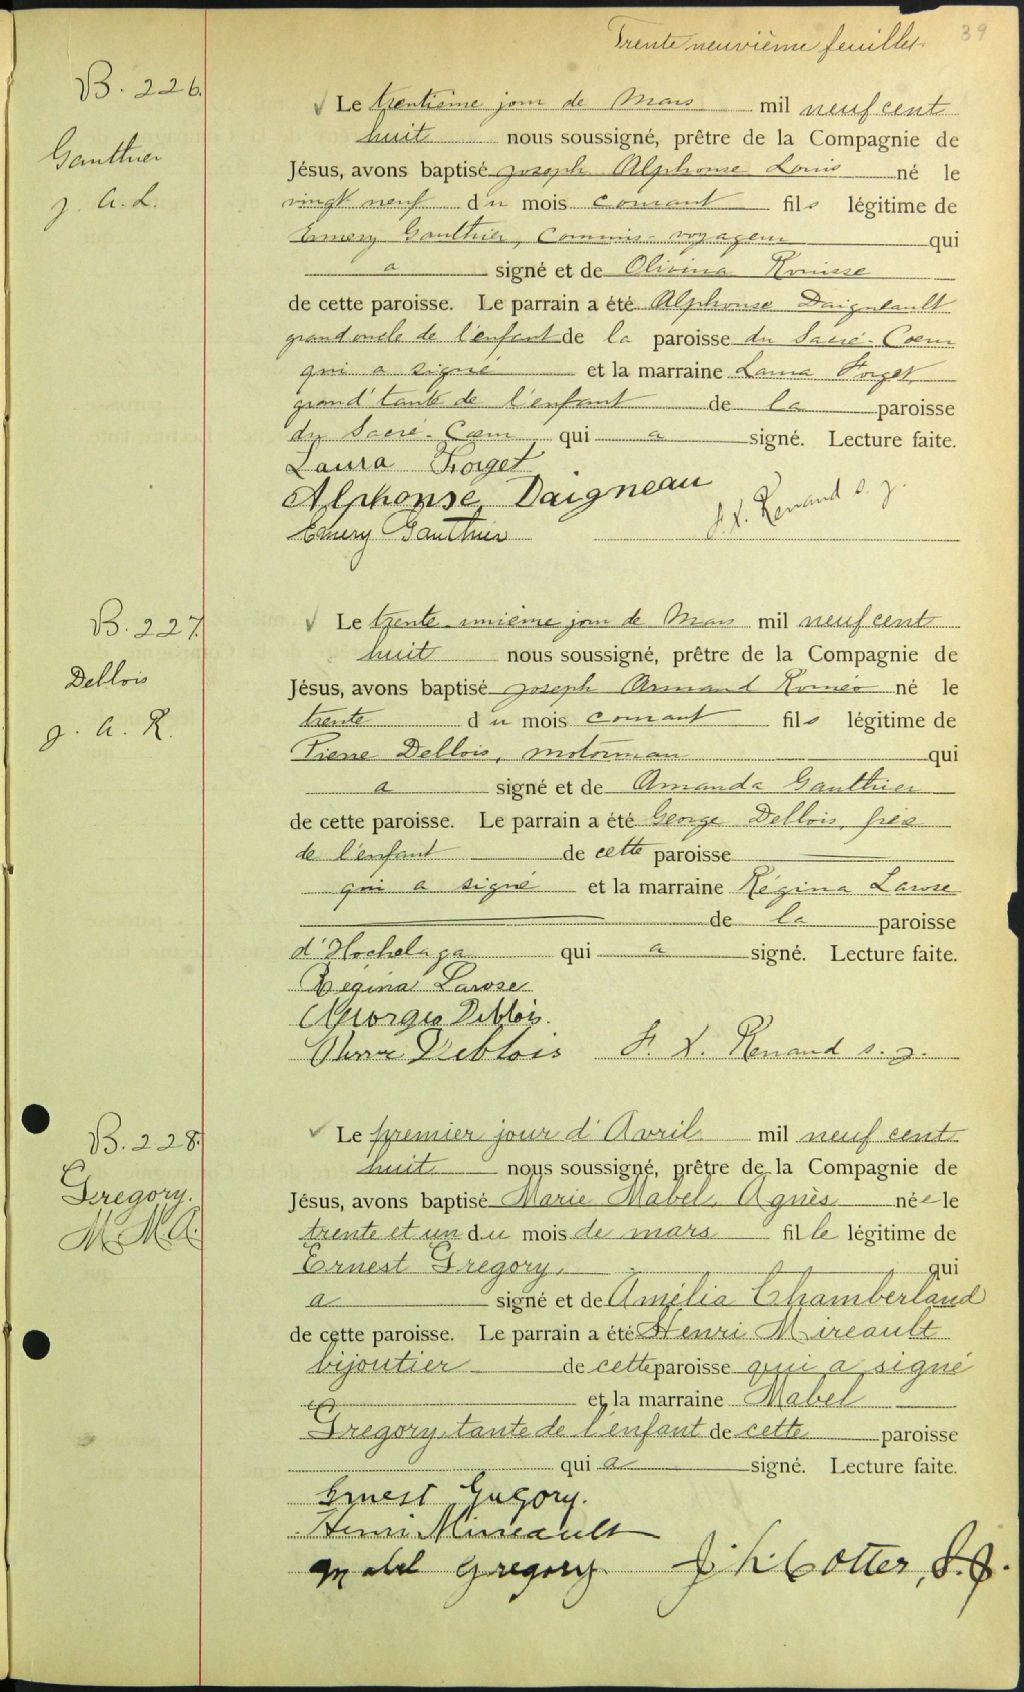 Trente neuvième feuillet. 39
B. 226.
Gauthier
J. A. L.
Le trentième jour de Mars mil neuf cent
huit nous soussigné, prêtre de la Compagnie de
Jésus, avons baptisé Joseph Alphonse Louis né le
vingt neuf du mois courant fils légitime de
Emery Gauthier, commis-voyageur qui
a signé et de Olivina
de cette paroisse. Le parrain a été Alphonse Daigneault
grand oncle de l'enfant de la paroisse du Sacré-Coeur
qui a signé et la marraine Laura Forget,
grand'tante de l'enfant de la paroisse
du Sacré-Coeur qui a signé. Lecture faite.
Laura Forget
Alphonse Daigneau
Emery Gauthier
F. X. Renaud s. j.
B. 227.
Deblois
J. A. R.
Le trente-unième jour de Mars mil neuf cent
huit nous soussigné, prêtre de la Compagnie de
Jésus, avons baptisé Joseph Armand Roméo né le
trente du mois courant fils légitime de
Pierre Deblois, motorman qui
a signé et de Amanda Gauthier
de cette paroisse. Le parrain a été George Deblois, frère
de l'enfant de cette paroisse
qui a signé et la marraine Régina Larose
de la paroisse
d'Hochelaga qui a signé. Lecture faite.
Régina Larose
Georges Deblois.
Pierre Deblois F. X. Renaud s. j.
B. 228.
Gregory.
M. M. A.
Le premier jour d'Avril mil neuf cent
huit nous soussigné, prêtre de la Compagnie de
Jésus, avons baptisé Marie Mabel Agnès née le
trente et un du mois de mars fille légitime de
Ernest Gregory, qui
a signé et de Amélia Chamberland
de cette paroisse. Le parrain a été Henri Mireault
bijoutier de cette paroisse qui a signé
et la marraine Mabel
Gregory, tante de l'enfant de cette paroisse
qui a signé. Lecture faite.
Ernest Gregory.
Henri Mireault
Mabel Gregory. J. K. Cotter, S.J.